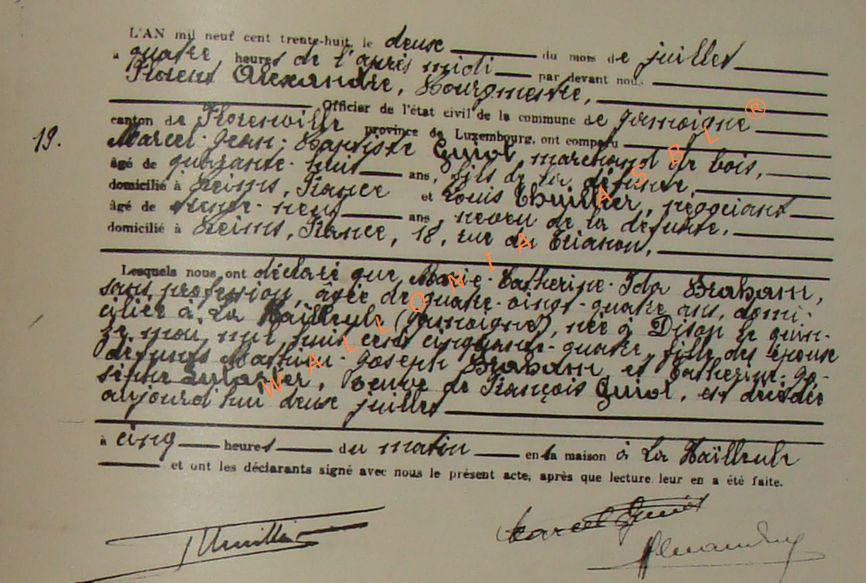 L'AN mil neuf cent trente-huit, le deux du mois de juillet
à quatre heures de l'après midi par devant nous
Florent Alexandre, Bourgmestre,
Officier de l'état civil de la commune de Jamoigne
canton de Florenville province de Luxembourg, ont comparu
19. Marcel-Jean-Baptiste Guiot, marchand de bois,
âgé de quarante-huit ans, fils de la défunte,
domicilié à Reims, France et Louis Thuillier, négociant
âgé de ans, neveu de la défunte,
domicilié à Reims, France, 18, rue du Trianon,
Lesquels nous ont déclaré que Marie-Catherine-Ida Braham,
sans profession, âgée de quatre-vingt-quatre ans, domi-
ciliée à La Hailleule (Jamoigne), née à Dison le quin-
ze mai mil huit cent cinquante-quatre, fille des époux
défunts Mathieu-Joseph Braham et Catherine-Jo-
sèphe veuve de François Guiot, est décédée
aujourd'hui deux juillet
à cinq heures du matin en sa maison à La Hailleule
et ont les déclarants signé avec nous le présent acte, après que lecture leur en a été faite.
WALLONIA ASBL ®
Thuillier
Marcel Guiot